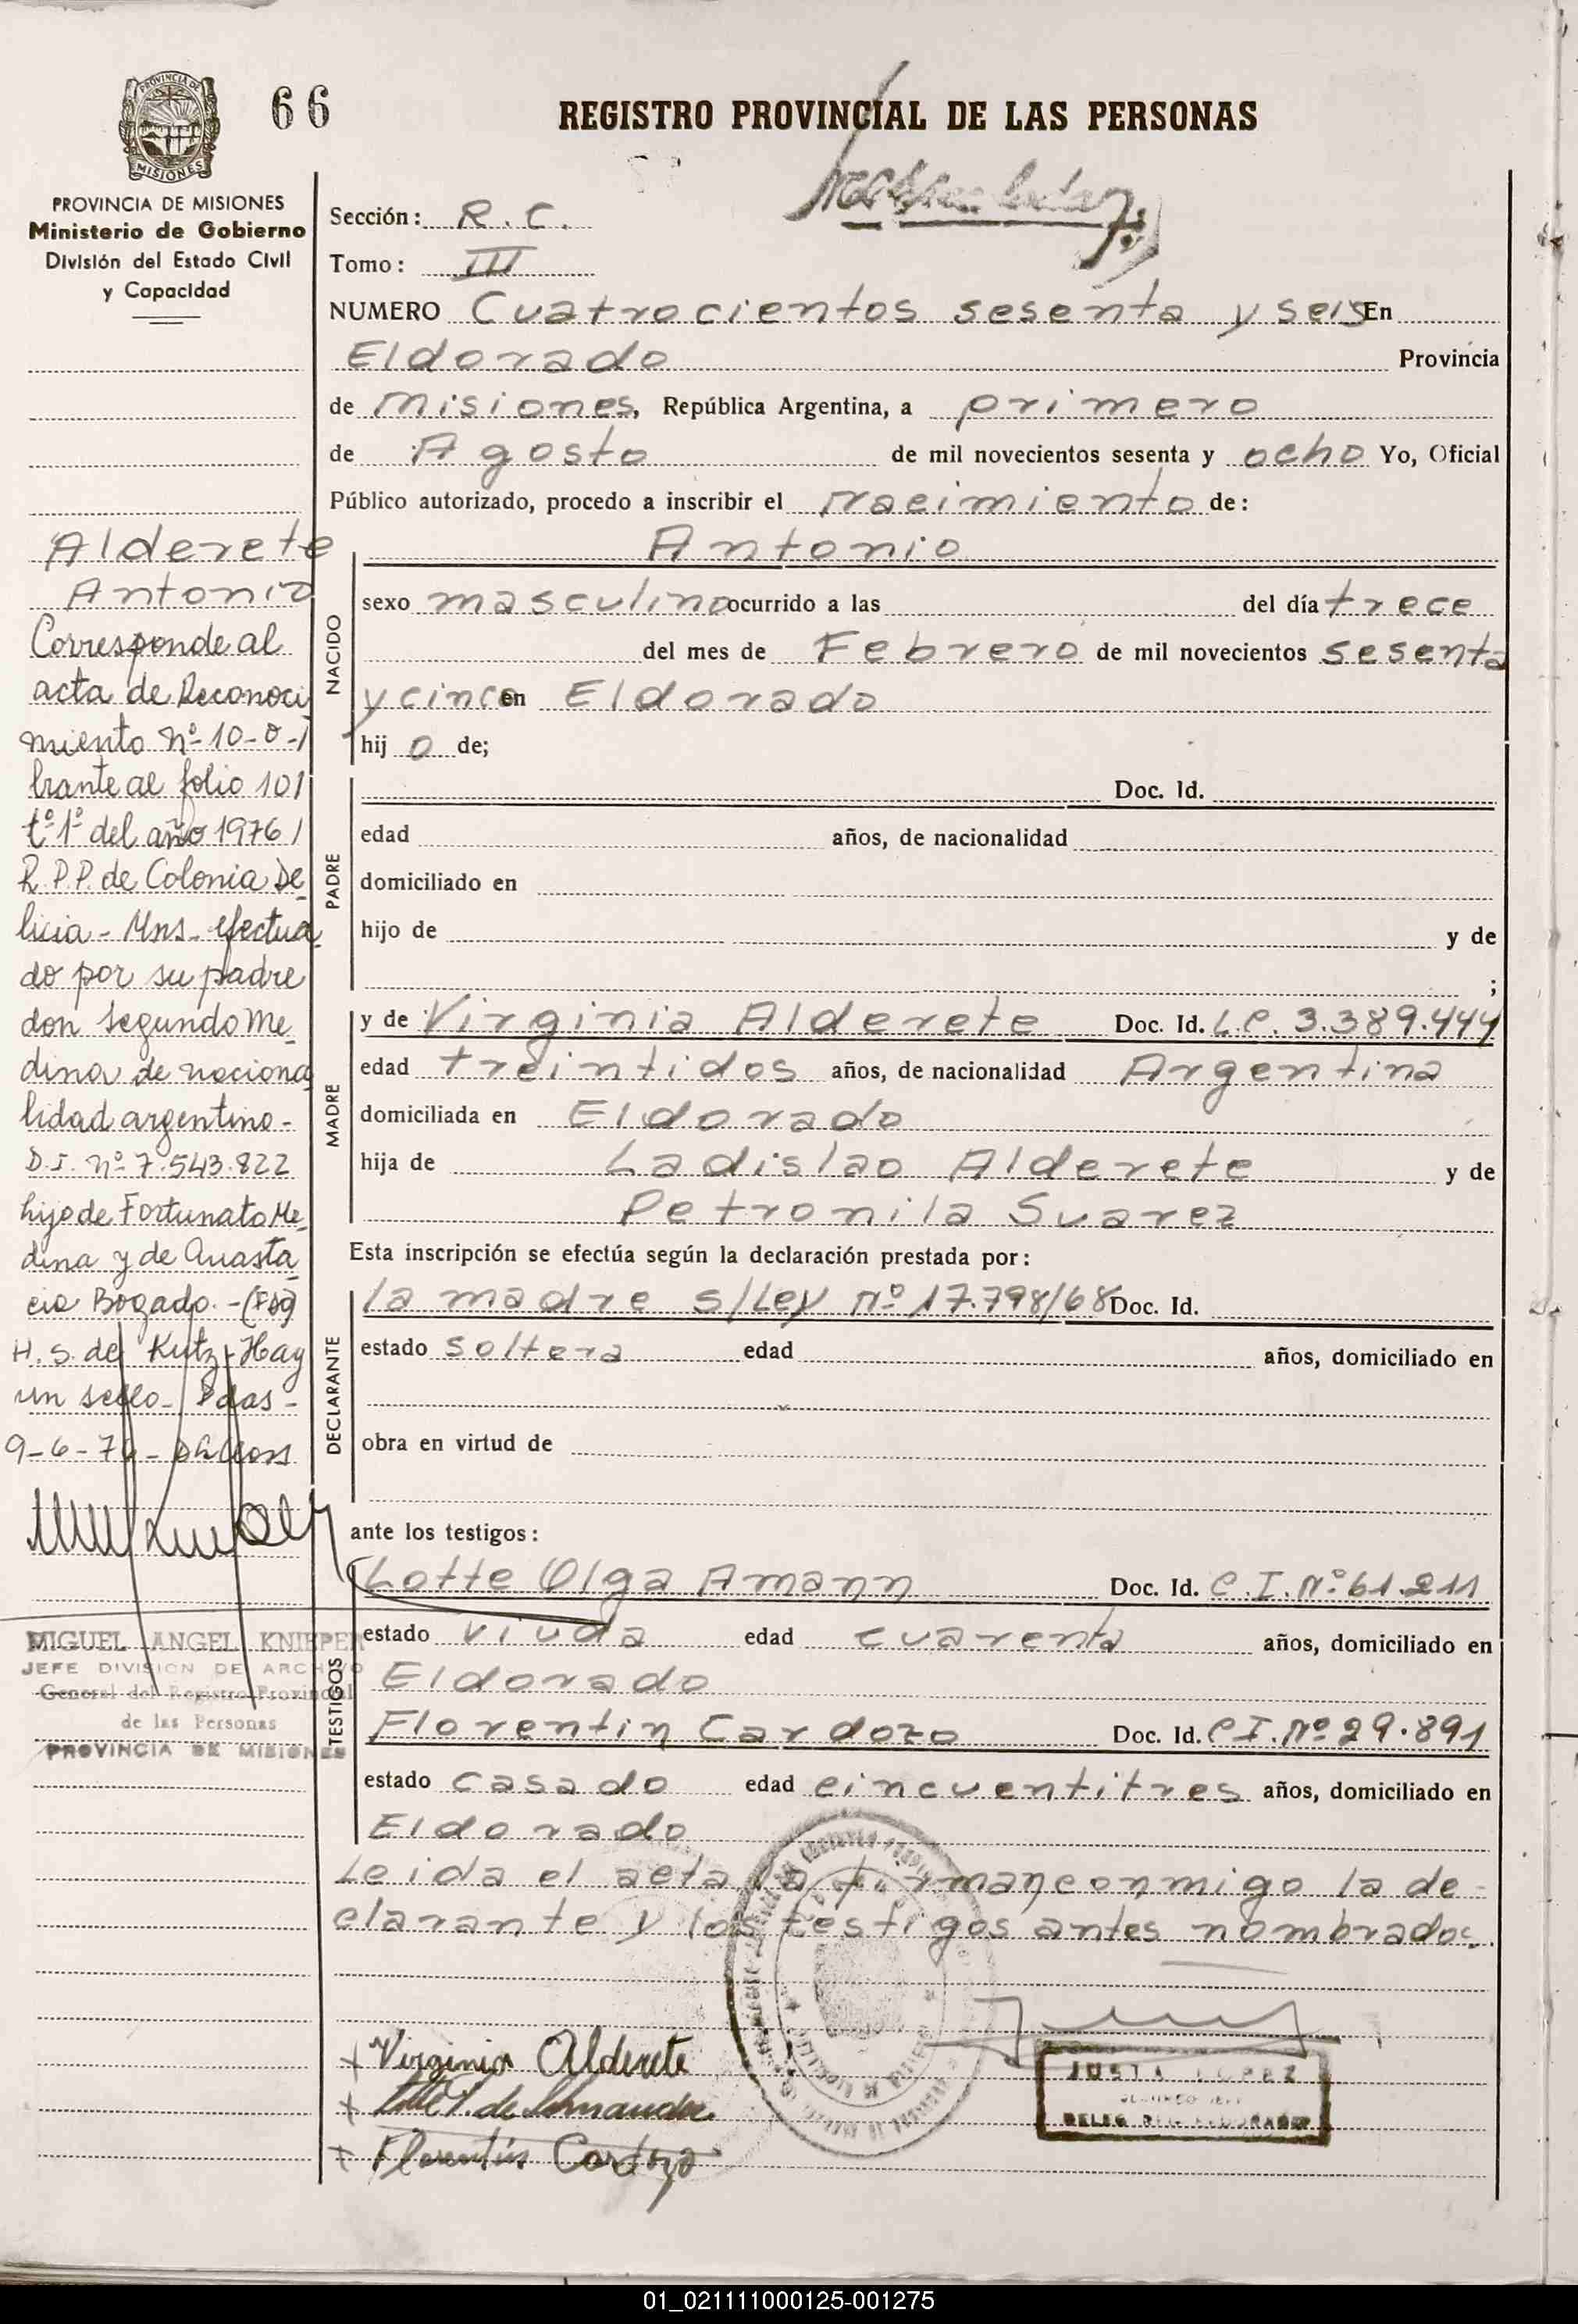 66
REGISTRO PROVINCIAL DE LAS PERSONAS
PROVINCIA DE
MISIONES
PROVINCIA DE MISIONES
Ministerio de Gobierno
División del Estado Civil
y Capacidad
Alderete
Antonio
Corresponde al
acta de Reconoci
miento nº 10-0-1
brante al folio 101
tº 1º del año 1976/
R.P.P. de Colonia De
licia - Mns - efectua
do por su padre
don Segundo Me
dina de naciona
lidad argentino -
D.I. nº 7.543.822
hijo de Fortunato Me
dina y de Anasta
cia Bogado. - (Fdo)
H. S. de Kutz - Hay
un sello - Pdas -
9-6-76 -
MIGUEL ANGEL KNIEPER
JEFE DIVISION DE ARCHIVO
General del Registro Provincial
de las Personas
PROVINCIA DE MISIONES
Sección: R. C.
Tomo: III
NUMERO Cuatrocientos sesenta y seis En
Eldorado Provincia
de Misiones, República Argentina, a primero
de Agosto de mil novecientos sesenta y ocho Yo, Oficial
Público autorizado, procedo a inscribir el nacimiento de:
NACIDO
Antonio
sexo masculino ocurrido a las del día trece
del mes de Febrero de mil novecientos sesenta
y cinco en Eldorado
hij o de;
PADRE
Doc. Id.
edad años, de nacionalidad
domiciliado en
hijo de y de
;
MADRE
y de Virginia Alderete Doc. Id. L.C. 3.389.444
edad treintidos años, de nacionalidad Argentina
domiciliada en Eldorado
hija de Ladislao Alderete y de
Petronila Suarez
Esta inscripción se efectúa según la declaración prestada por:
DECLARANTE
la madre s/Ley Nº 17.798/68 Doc. Id.
estado soltera edad años, domiciliado en
obra en virtud de
ante los testigos:
TESTIGOS
Lotte Olga Amann Doc. Id. C.I. Nº 61.211
estado viuda edad cuarenta años, domiciliado en
Eldorado
Florentin Cardozo Doc. Id. C.I. Nº 29.891
estado casado edad cincuentitres años, domiciliado en
Eldorado
Leida el acta la firman conmigo la de-
clarante y los testigos antes nombrados.
+ Virginia Alderete
+ Florentín Cardozo
JUSTA LOPEZ
01_021111000125-001275